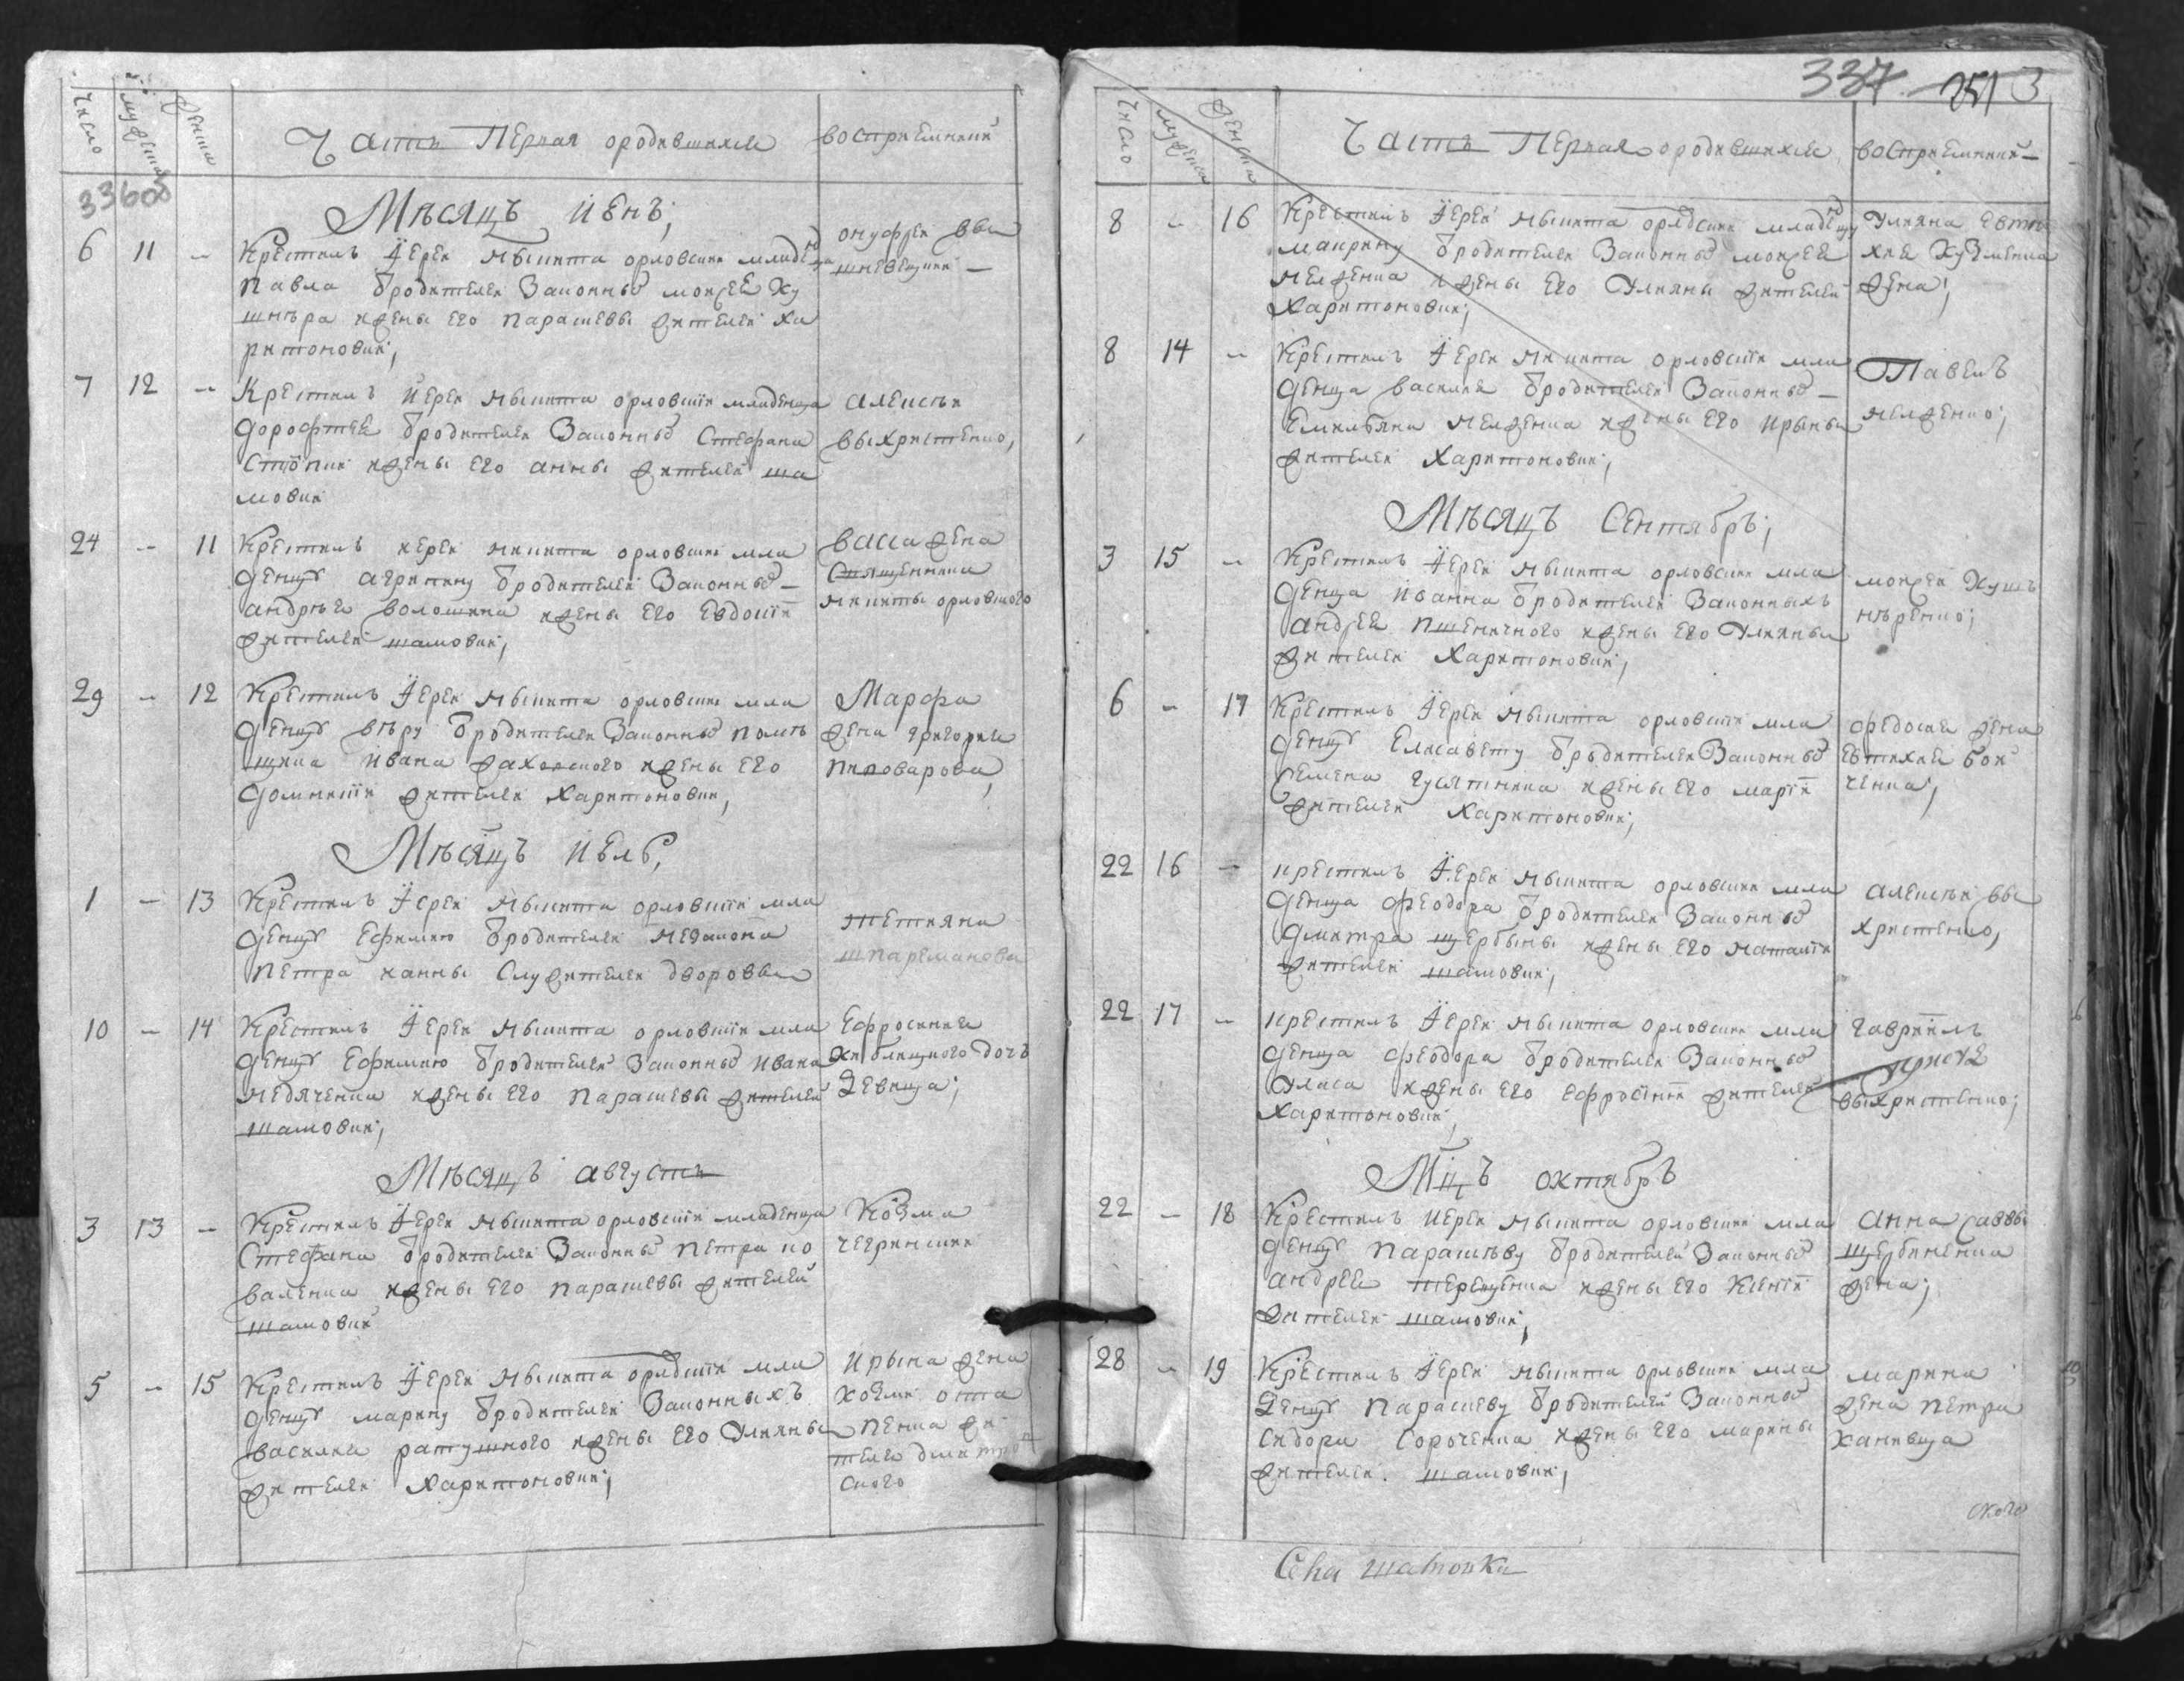 Число
мужеска
женска
Часть Первая ородившихся
восприемники
3360об
Мѣсяцъ июнь;
6 11 - Крестилъ Їерей Никита орловский младенца
Павла ѿродителей Законныхъ моисея Ку
шнѣра ижены его парашевы жителей Ха
ритоновки;
онуфрей
7 12 - Крестилъ иерей Никита орловский младенца
дорофтея ѿродителей Законныхъ Стефана
ижены его анны жителей ша
мовки
алексѣй
выхристенко,
24 - 11 Крестилъ иерей Никита орловский мла
денца агрипину ѿродителей Законныхъ
андрѣя волошина ижены его Евдокїи
жителей шамовки;
васса жена
Священника
никиты орловского
29 - 12 Крестилъ Їерей Никита орловский мла
денца вѣру ѿродителей Законныхъ помѣ
щика Ивана ижены его
домникїи жителей Харитоновки,
Марфа
жена григория
пивоварова,
Мѣсяцъ июль,
1 - 13 Крестилъ Їерей Никита орловскїй мла
денца Ефимию ѿродителей незакона
Петра ианны Служителей дворовых
тетияна
шпарманова
10 - 14 Крестилъ Їерей Никита орловскїй мла
денца Ефимию ѿродителей Законныхъ Ивана
недяченка ижены его парашевы жителей
шамовки;
Ефросиния
дочь
Девица;
Мѣсяцъ августъ
3 13 - Крестилъ Їерей Никита орловскїй младенца
Стефана ѿродителей Законныхъ петра ко
валенка ижены его парашевы жителей
шамовки
Козма
чегринский
5 - 15 Крестилъ Їерей Никита орловскїй мла
денца марину ѿродителей Законныхъ
василия ратушного ижены его Улияны
жителей Харитоновки;
Ирына жена
козми оста
пенка жи
теля дмитров
ского
337 251 3
Число
мужеска
женска
Часть Первая ородившихся
восприемники
8 - 16 Крестилъ Їерей Никита орловский младенца
маврину ѿродителей Законныхъ моисея
нелженка ижены его Улияны жителей
Харитоновки;
Улияна евти
хия Кузменка
жена;
8 14 - Крестилъ Їерей Никита орловскїй мла
денца василия ѿродителей Законныхъ
Емилъяна нелженка ижены его Ирыны
жителей Харитоновки;
Павелъ
нелженко;
Мѣсяцъ Сентябръ;
3 15 - Крестилъ Їерей Никита орловский мла
денца Иоанна ѿродителей Законныхъ
андрея пшеничного ижены его Улияны
жителей Харитоновки;
моисей Кушъ
нѣренко;
6 - 17 Крестилъ Їерей Никита орловскїй мла
денца Елисавету ѿродителей Законныхъ
Семена гусятника ижены его марїи
жителей Харитоновки;
федосия жена
Евтихия бой
ченка;
22 16 - крестилъ Їерей Никита орловский мла
денца феодора ѿродителей Законныхъ
дмитра щербины ижены его наталїи
жителей шамовки;
алексѣй вы
христенко,
22 17 - крестилъ Їерей Никита орловский мла
денца феодора ѿродителей Законныхъ
Уласа ижены его ефросїнїи жителей
Харитоновки;
гаврїилъ
выхристенко;
Мцъ октябръ
22 - 18 Крестилъ Иерей Никита орловский мла
денца парашѣву ѿродителей Законныхъ
андрея терещенка ижены его Ксенїи
жителей шамовки;
анна саввы
щербиненка
жена;
28 - 19 Крестилъ Їерей Никита орловский мла
денца парашеву ѿродителей Законныхъ
Сидора Сороченка ижены его марины
жителей шамовки;
марина
жена петра
ханивца
ского
Села шамовки